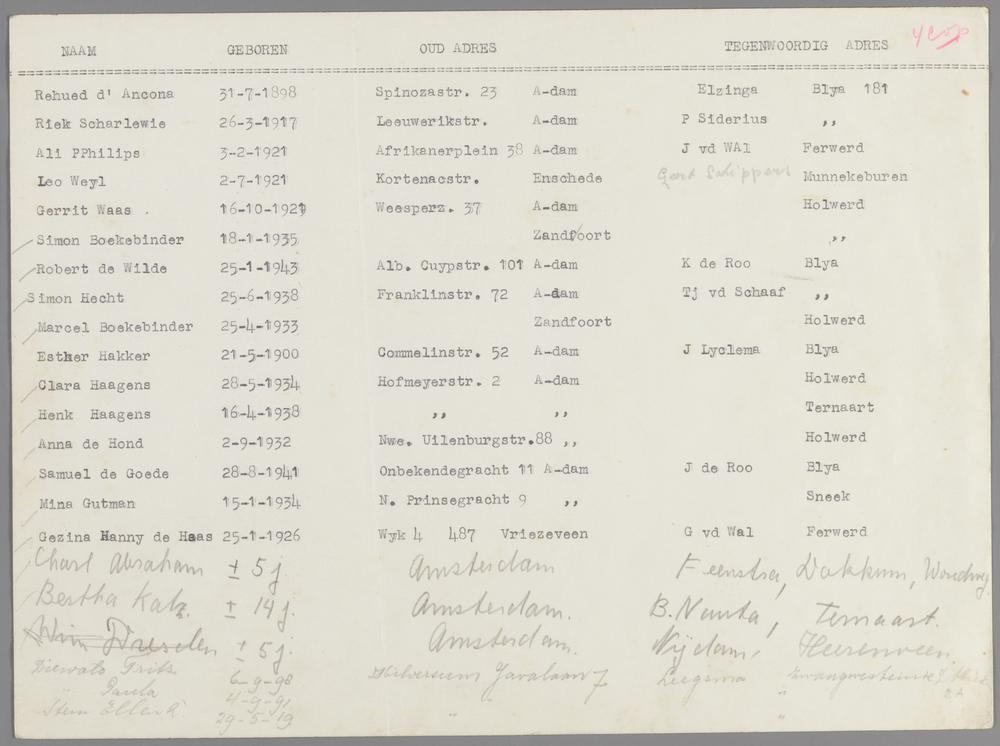 NAAM GEBOREN OUD ADRES TEGENWOORDIG ADRES 4 cop
Rehued d' Ancona 31-7-1898 Spinozastr. 23 A-dam Elzinga Blya 181
Riek Scharlewie 26-3-1917 Leeuwerikstr. A-dam P Siderius ,,
Ali PPhilips 3-2-1921 Afrikanerplein 38 A-dam J vd WAl Ferwerd
Leo Weyl 2-7-1921 Kortenaestr. Enschede Gert Schippers Munnekeburen
Gerrit Waas . 16-10-1921 Weesperz. 37 A-dam Holwerd
Simon Boekebinder 18-1-1935 Zandfoort ,,
Robert de Wilde 25-1-1943 Alb. Cuypstr. 101 A-dam K de Roo Blya
Simon Hecht 25-6-1938 Franklinstr. 72 A-dam Tj vd Schaaf ,,
Marcel Boekebinder 25-4-1933 Zandfoort Holwerd
Esther Hakker 21-5-1900 Commelinstr. 52 A-dam J Lyclema Blya
Clara Haagens 28-5-1934 Hofmeyerstr. 2 A-dam Holwerd
Henk Haagens 16-4-1938 ,, ,, Ternaart
Anna de Hond 2-9-1932 Nwe. Uilenburgstr.88 ,, Holwerd
Samuel de Goede 28-8-1941 Onbekendegracht 11 A-dam J de Roo Blya
Mina Gutman 15-1-1934 N. Prinsegracht 9 ,, Sneek
Gezina Hanny de Haas 25-1-1926 Wyk 4 487 Vriezeveen G vd Wal Ferwerd
Charl Abraham ± 5 j. Amsterdam Feenstra, Dokkum,
Bertha Katz. ± 14 j. Amsterdam. B. Nauta, Ternaart.
Wim Dresden ± 5 j. Amsterdam. Nijdam, Heerenveen.
Fritz 6-9-98 Hilversum Javalaan 7 Leegsma
" Paula 4-9-91
Stern Ellen 29-5-19 " "